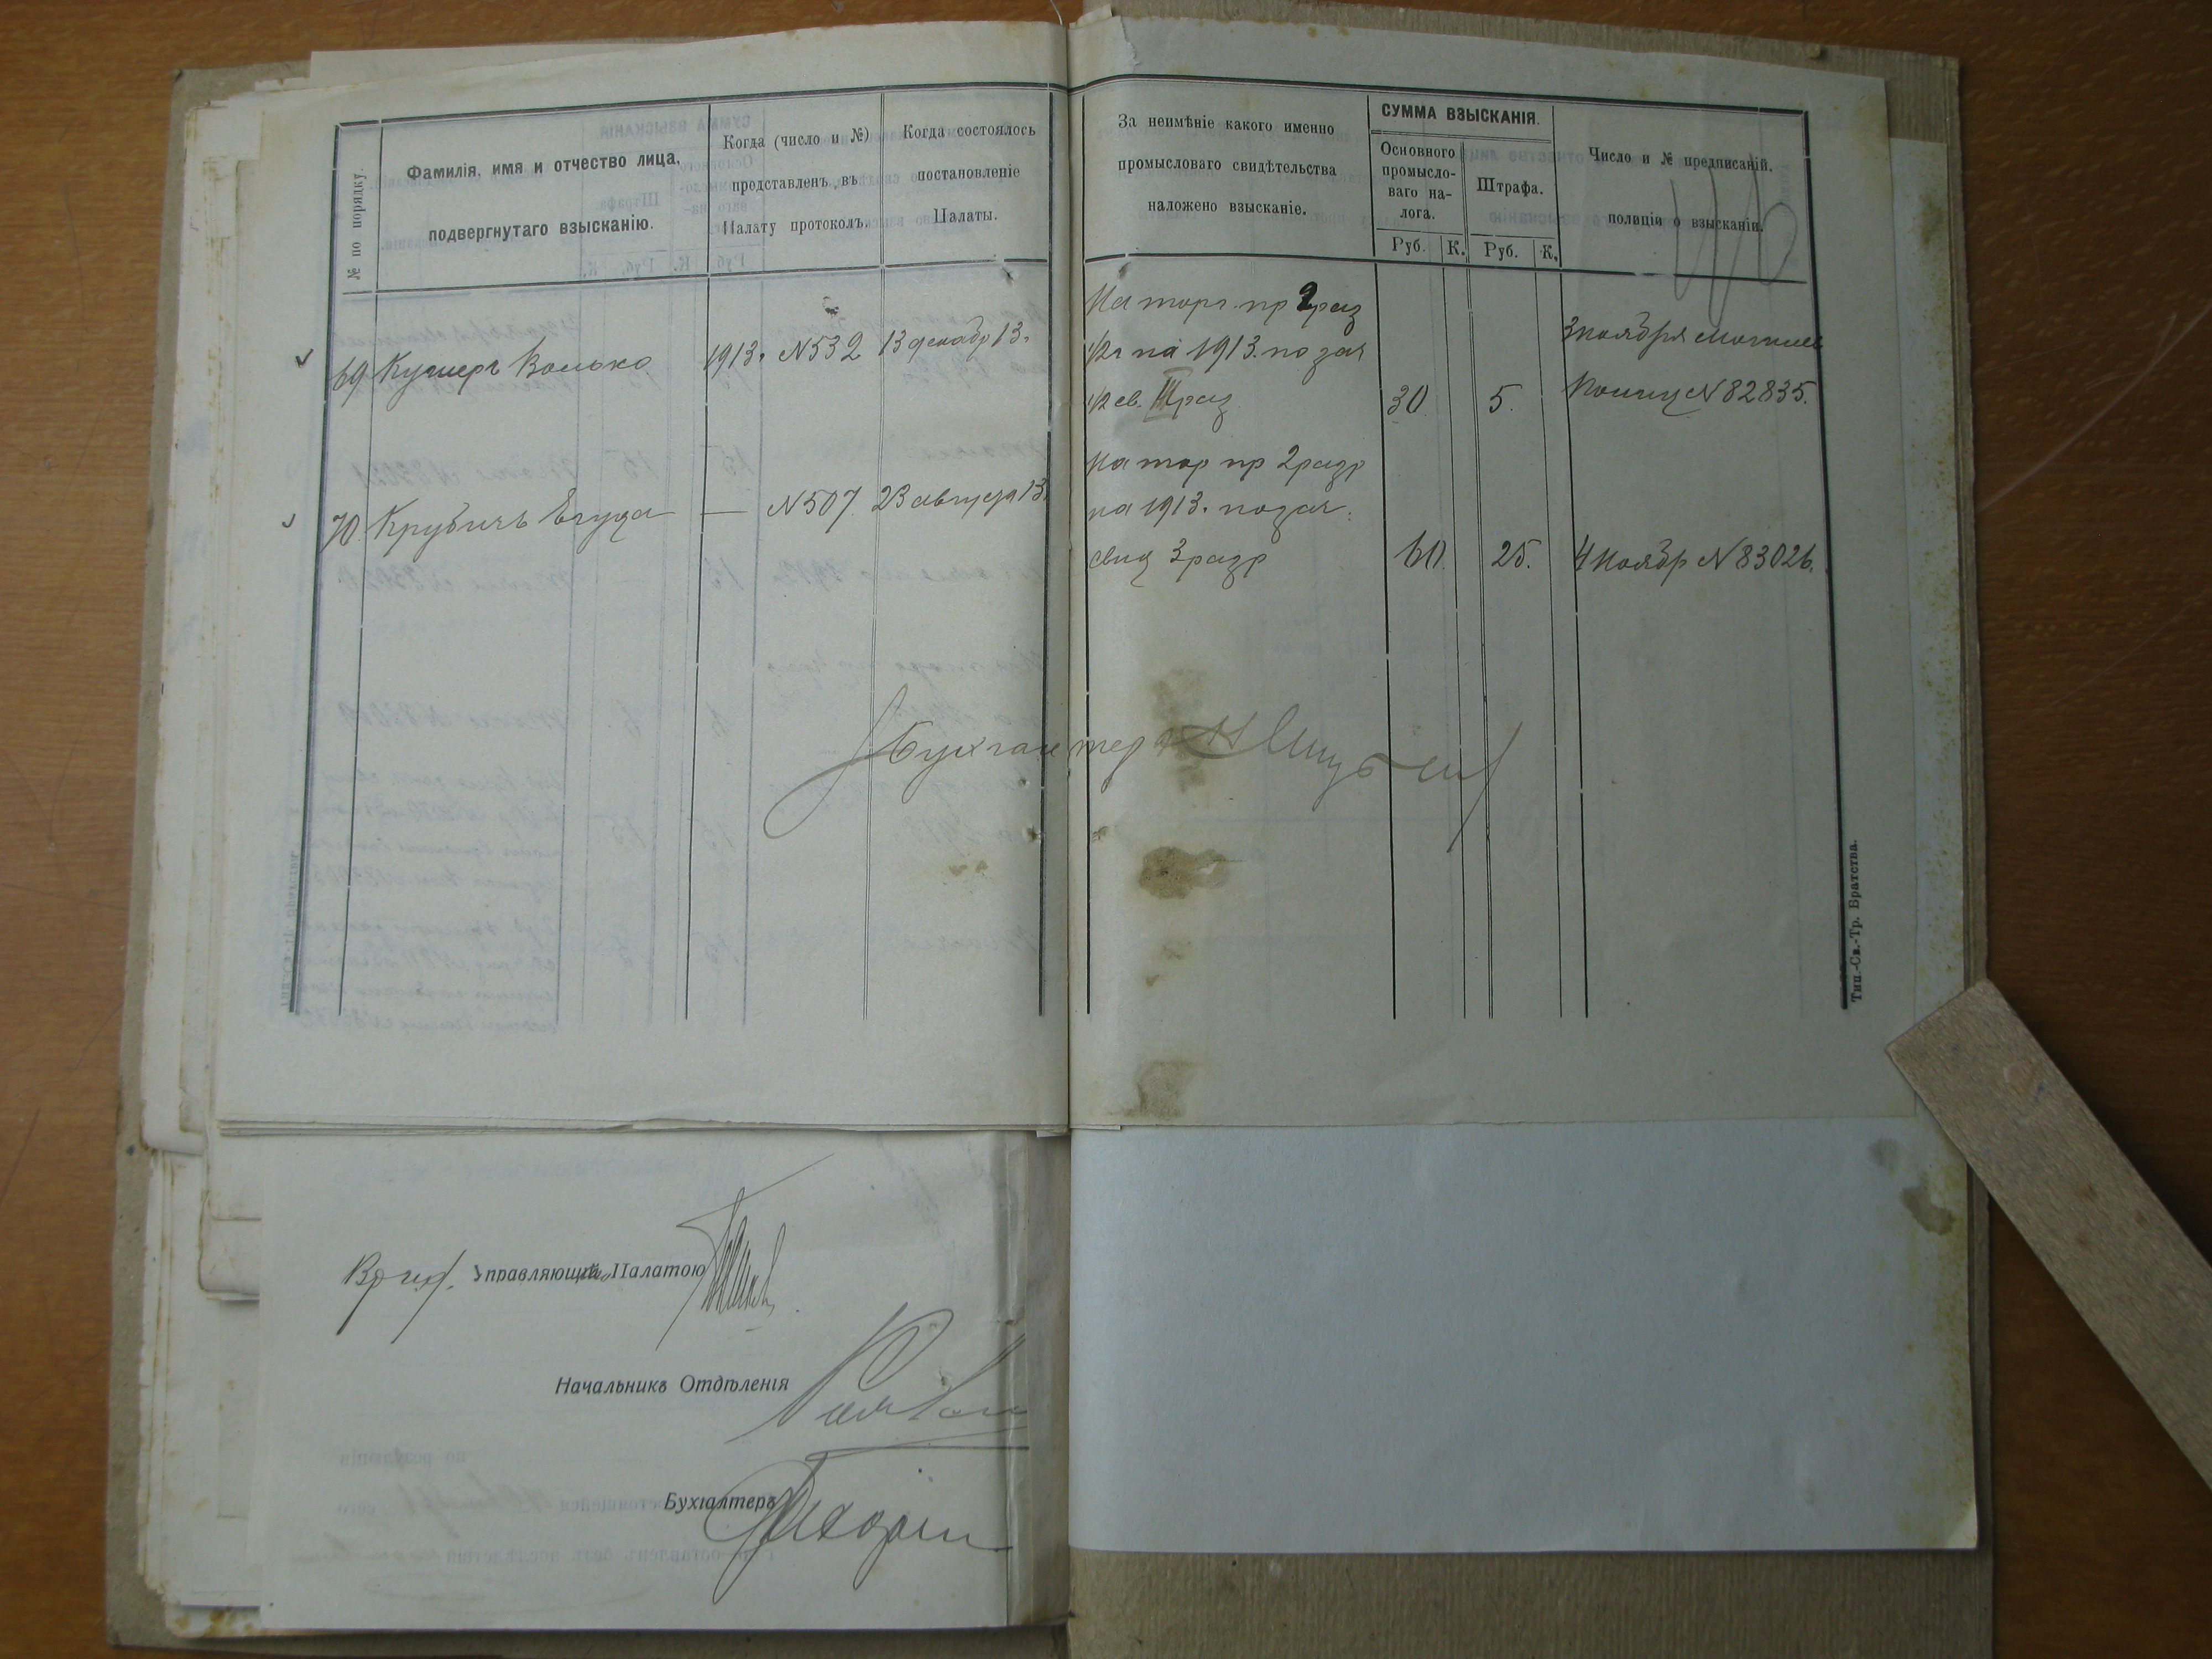 № по порядку.
Фамилія, имя и отчество лица,
подвергнутаго взысканію.
Когда (число и №)
представленъ въ
Палату протоколъ.
Когда состоялось
постановленіе
Палаты.
За неимѣніе какого именно
промысловаго свидѣтельства
наложено взысканіе.
СУММА ВЗЫСКАНІЯ.
Основного
промысло-
ваго на-
лога.
Штрафа.
Руб. К. Руб. К.
Число и № предписаній.
полиціи о взысканіи.
69 Кушеръ Волько 1913. N 532 13 декабр 13.
На торг. пр 2 раз
1/2 г на 1913. по зая
1/2 св. III раз 30. 5.
3 ноября
N 82835.
70. Крубичъ Егуда — N 507 23 августа 13.
на тор пр 2 разр
на 1913. по зая.
свид 3 разр 60. 25. 4 ноябр N 83026.
Бухгалтеръ
Тип.-Св.-Тр. Братства.
Управляющій Палатою
Начальникъ Отдѣленія
Бухгалтеръ